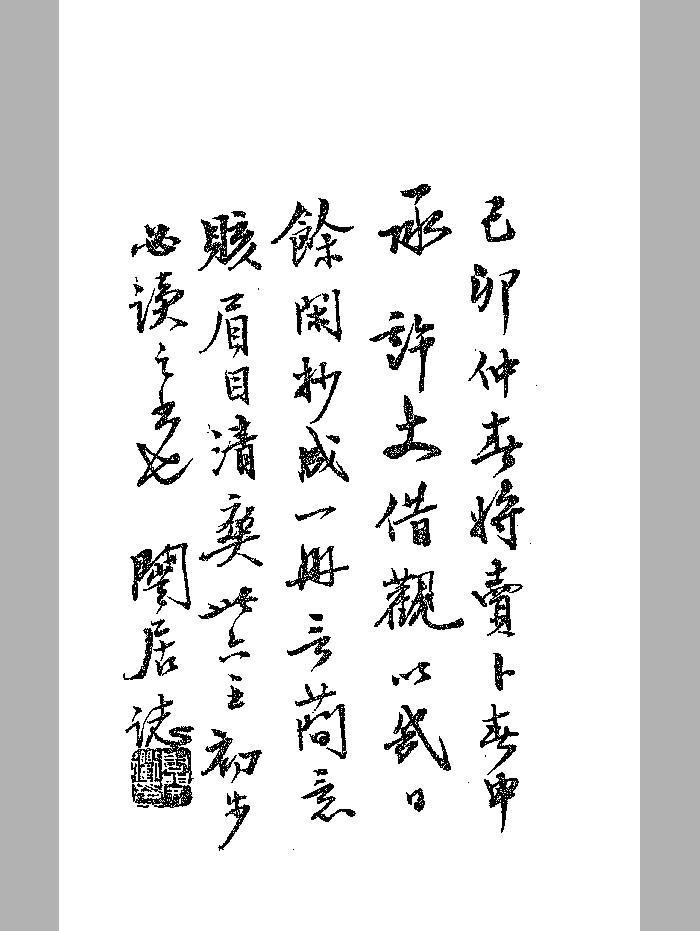 己卯仲春將賣卜春申
承 許士借觀以幾日
餘閑抄成一冊言簡意
賅眉目清爽此六壬初步
必读之书也 闇居誌